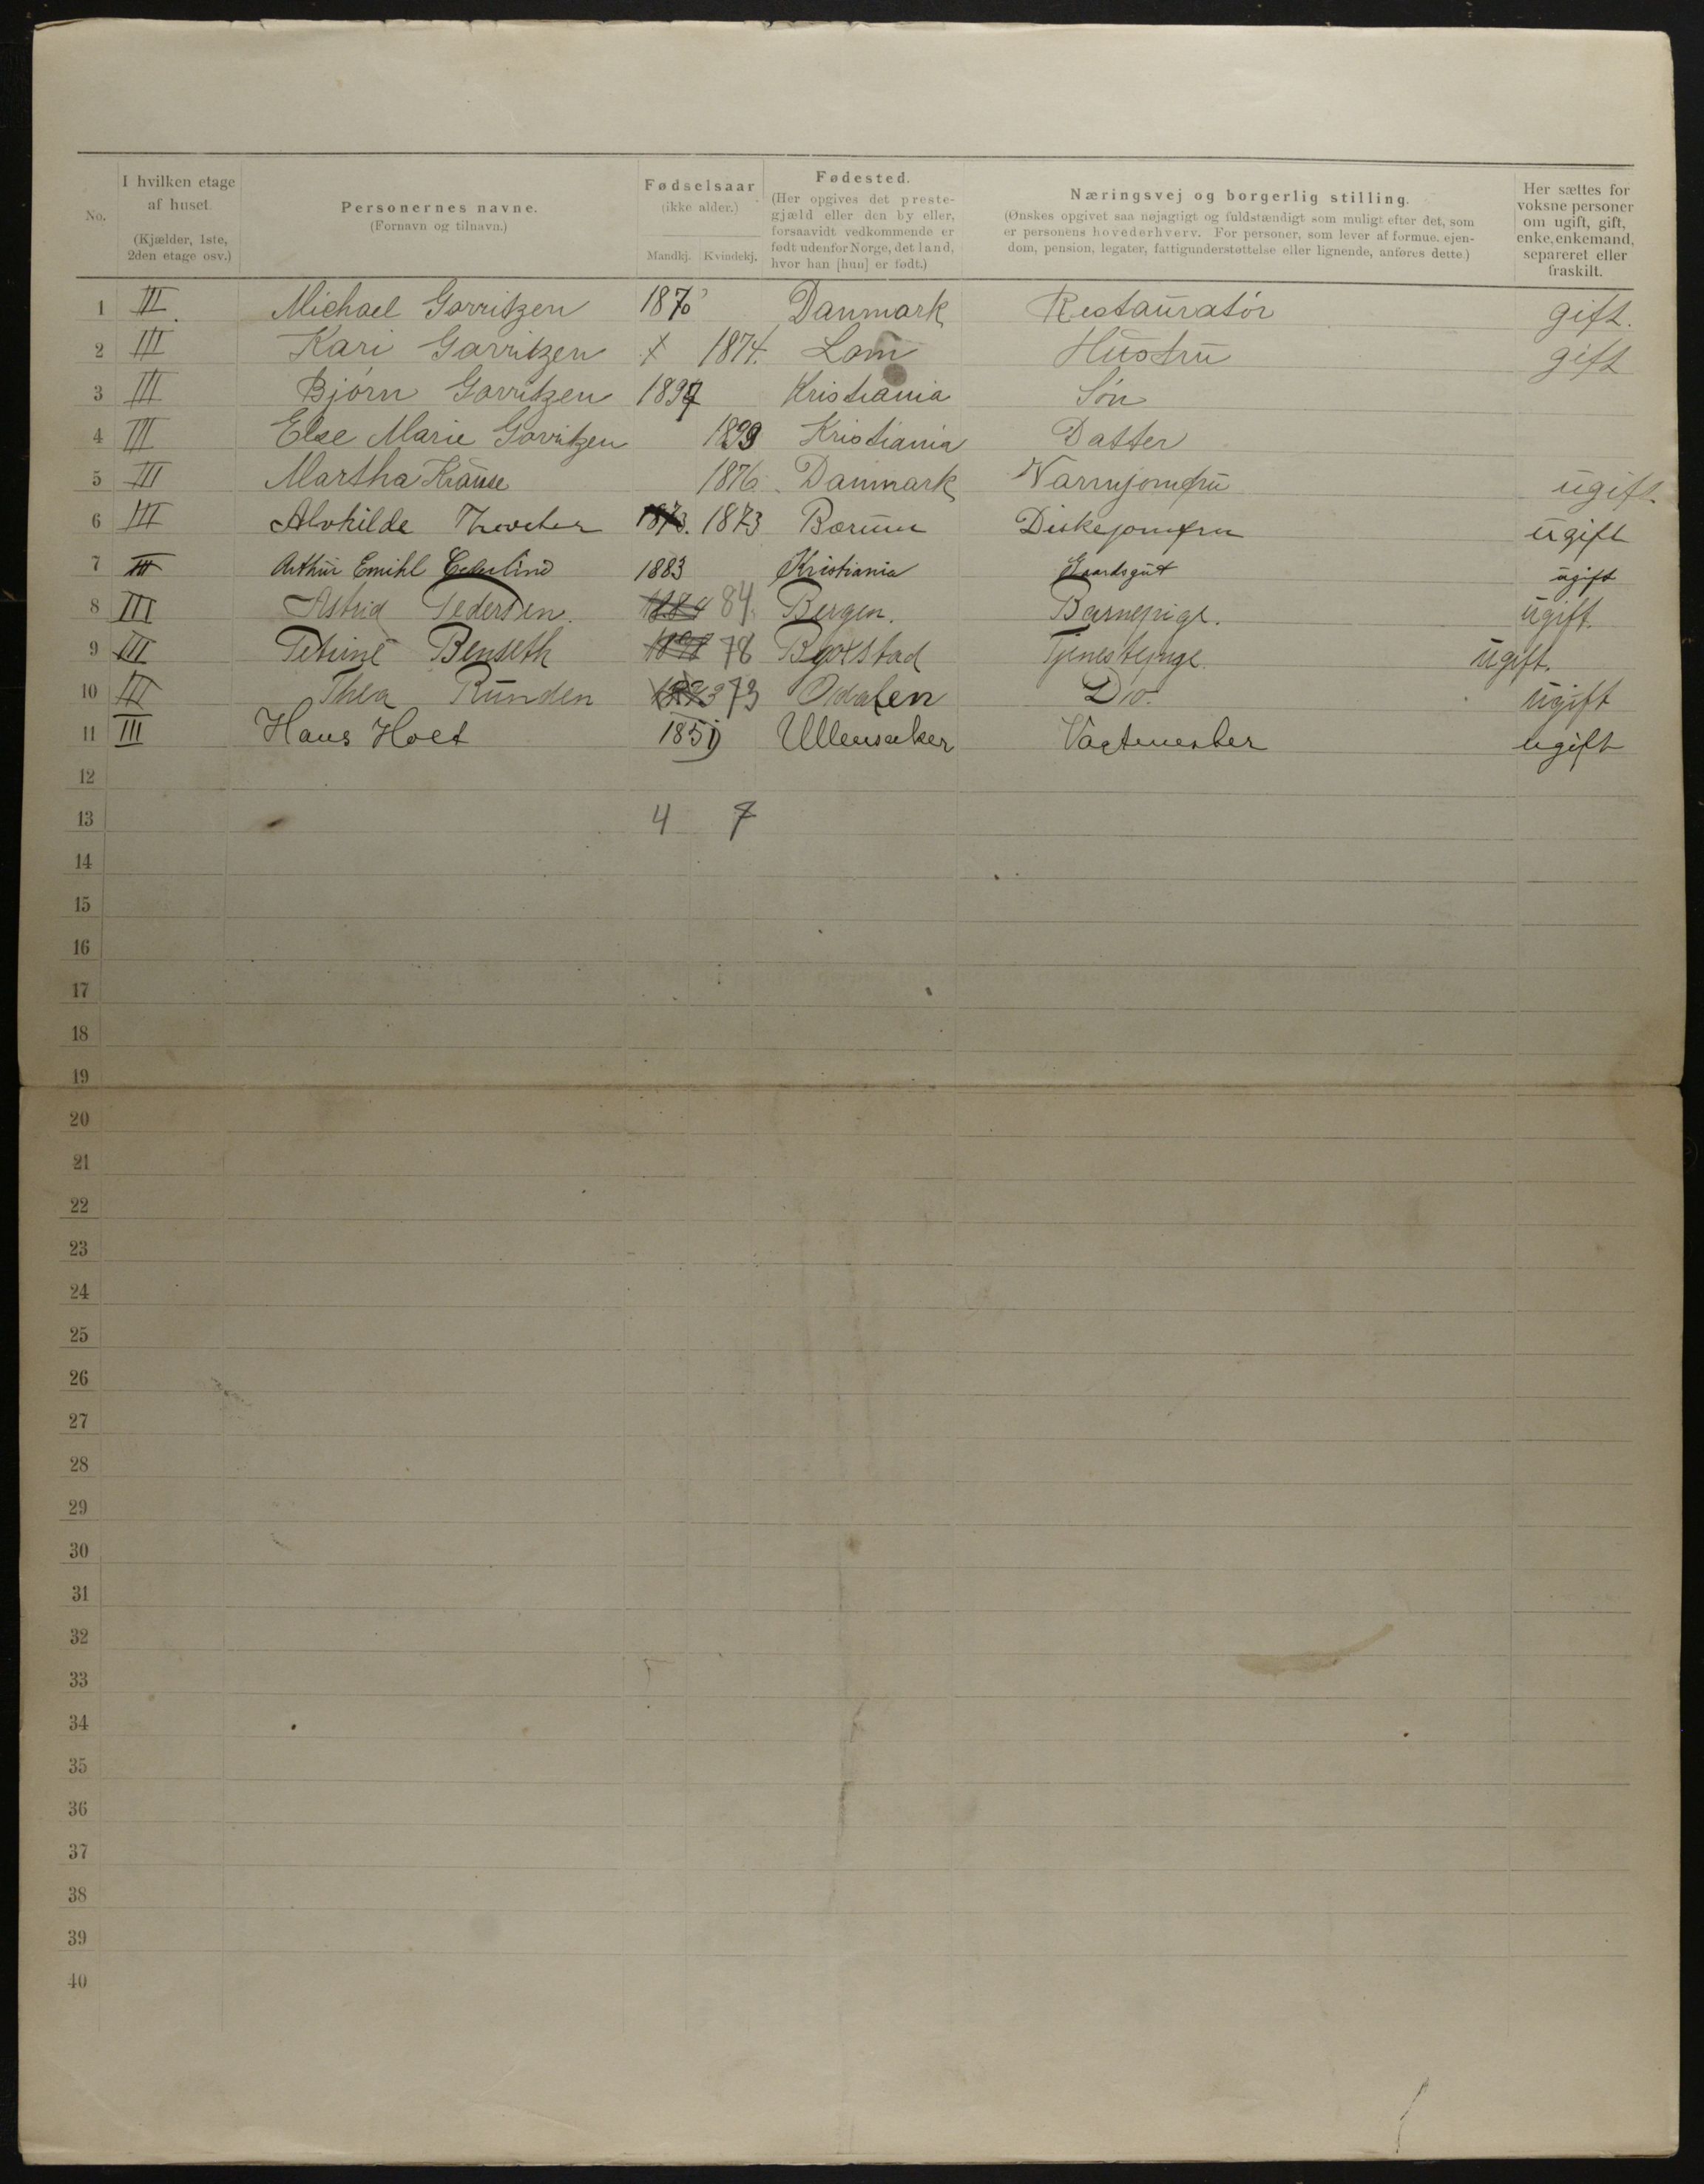 No. I hvilken etage af huset. (Kjælder, 1ste, 2den etage osv.) Personernes navne. (Fornavn og tilnavn.) Fødselsaar (ikke alder.) Mandkj. Kvindekj. Fødested. (Her opgives det prestegjæld eller den by eller, forsaavidt vedkommende er født udenfor Norge, det land, hvor han [hun] er født.) Næringsvej og borgerlig stilling. (Ønskes opgivet saa nøjagtigt og fuldstændigt som muligt efter det, som er personens hovederhverv. For personer, som lever af formue, ejendom, pension, legater, fattigunderstøttelse eller lignende, anføres dette.) Her sættes for voksne personer om ugift, gift, enke, enkemand, separeret eller fraskilt.
1 III. Michael Gorritzen 1870 Danmark Restauratör gift.
2 III Kari Gorritzen 1874. Lom Hustru gift
3 III Bjørn Gorritzen 1897 Kristiania Søn
4 III Else Marie Gorritzen 1899 Kristiania Datter
5 III Martha Krause 1876. Danmark Varmjomfru ugift.
6 III Alvhilde 1873. 1873 Bærum Diskejomfru ugift
7 III Arthur Emihl 1883 Kristiania Gaardsgut ugift
8 III Astrid Pedersen. 1884 84. Bergen. Barnepige. ugift.
9 III Petrine Benseth 78 Tjenestepige. ugift.
10 III Thea Runden 73 Odalen Do. ugift
11 III Hans Holt 1851 Ullensaker Vagtmester ugift
12
13 4 7
14
15
16
17
18
19
20
21
22
23
24
25
26
27
28
29
30
31
32
33
34
35
36
37
38
39
40